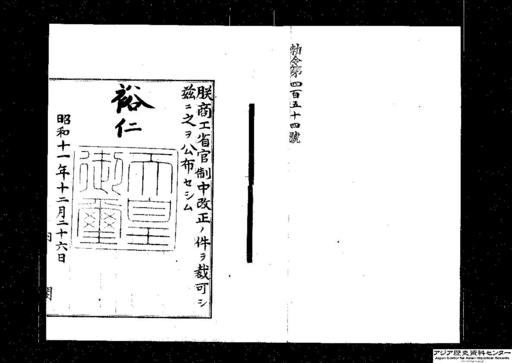 勅令第四百五十四號
朕商工省官制中改正ノ件ヲ裁可シ
茲ニ之ヲ公布セシム
裕仁
天皇御璽
昭和十一年十二月二十六日
内閣
アジア歴史資料センター
Japan Center for Asian Historical Records